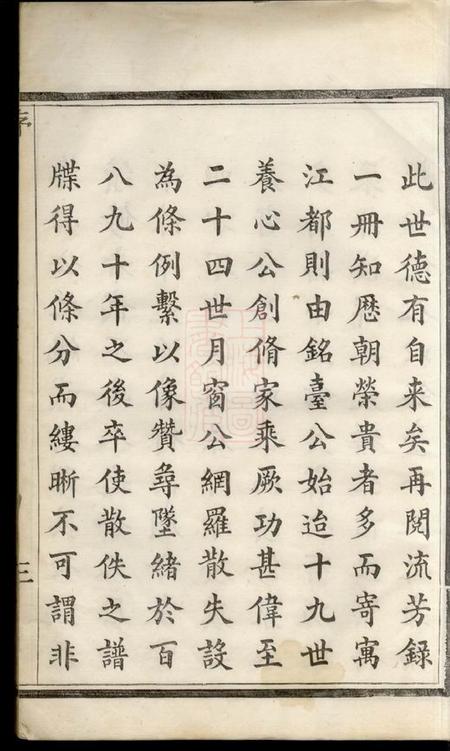 此世德有自来矣再閱流芳錄
一冊知歴朝榮貴者多而寄寓
江都則由銘臺公始迨十九世
養心公創脩家乘厥功甚偉至
二十四世月窗公網羅散失設
為條例繫以像贊尋墜緒於百
八九十年之後卒使散佚之譜
牒得以條分而縷晣不可謂非
序
三